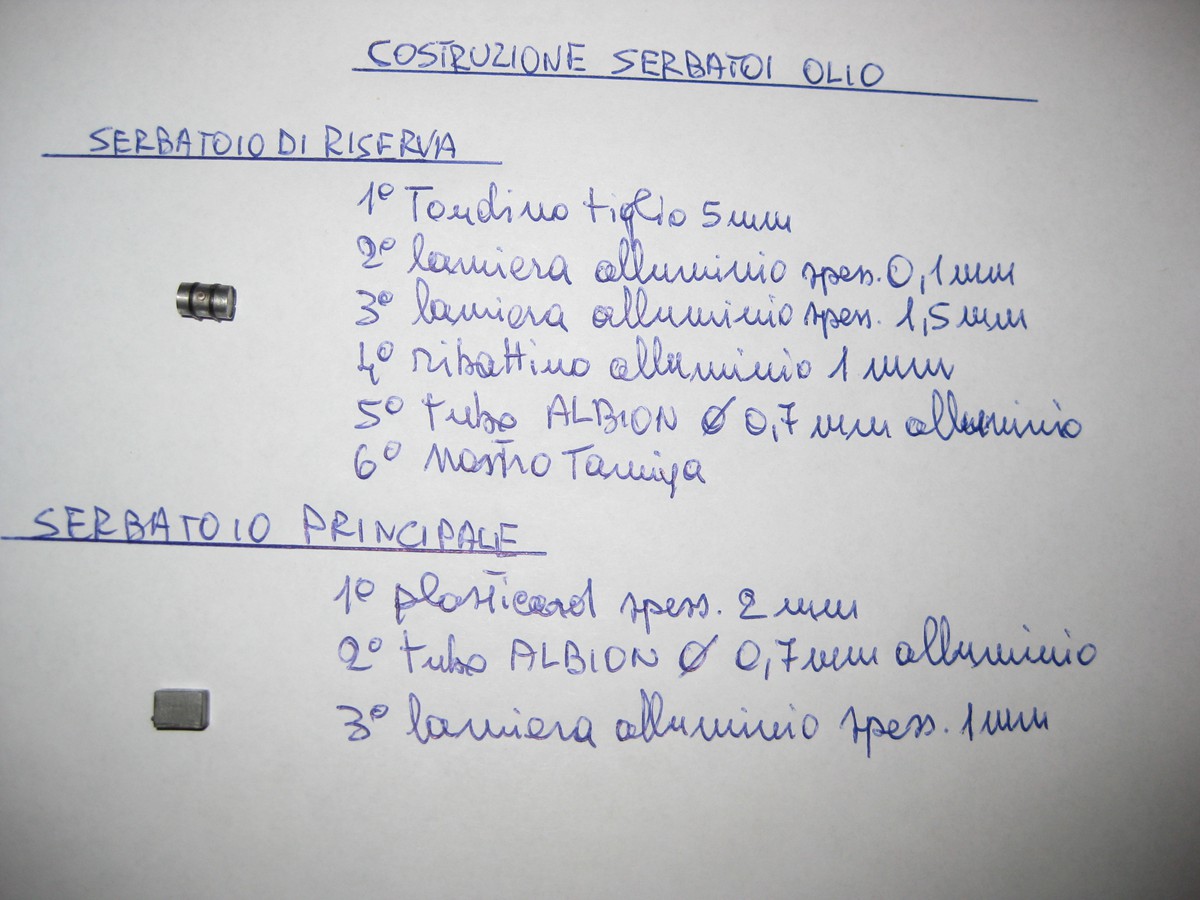 COSTRUZIONE SERBATOI OLIO
SERBATOIO DI RISERVA
1º Tondino tiglio 5mm
2º lamiera alluminio spess. 0,1mm
3º lamiera alluminio spess. 1,5mm
4º ribattino alluminio 1mm
5º tubo ALBION Ø 0,7mm alluminio
6º Nastro Tamiya
SERBATOIO PRINCIPALE
1º plasticard spess. 2mm
2º tubo ALBION Ø 0,7mm alluminio
3º lamiera alluminio spess. 1mm